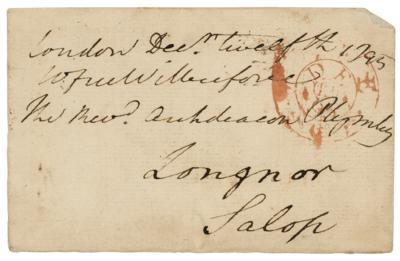 London Decr. twelfth 1795
W Free Wilberforce
The Revd. Archdeacon Plymley
Longnor
Salop